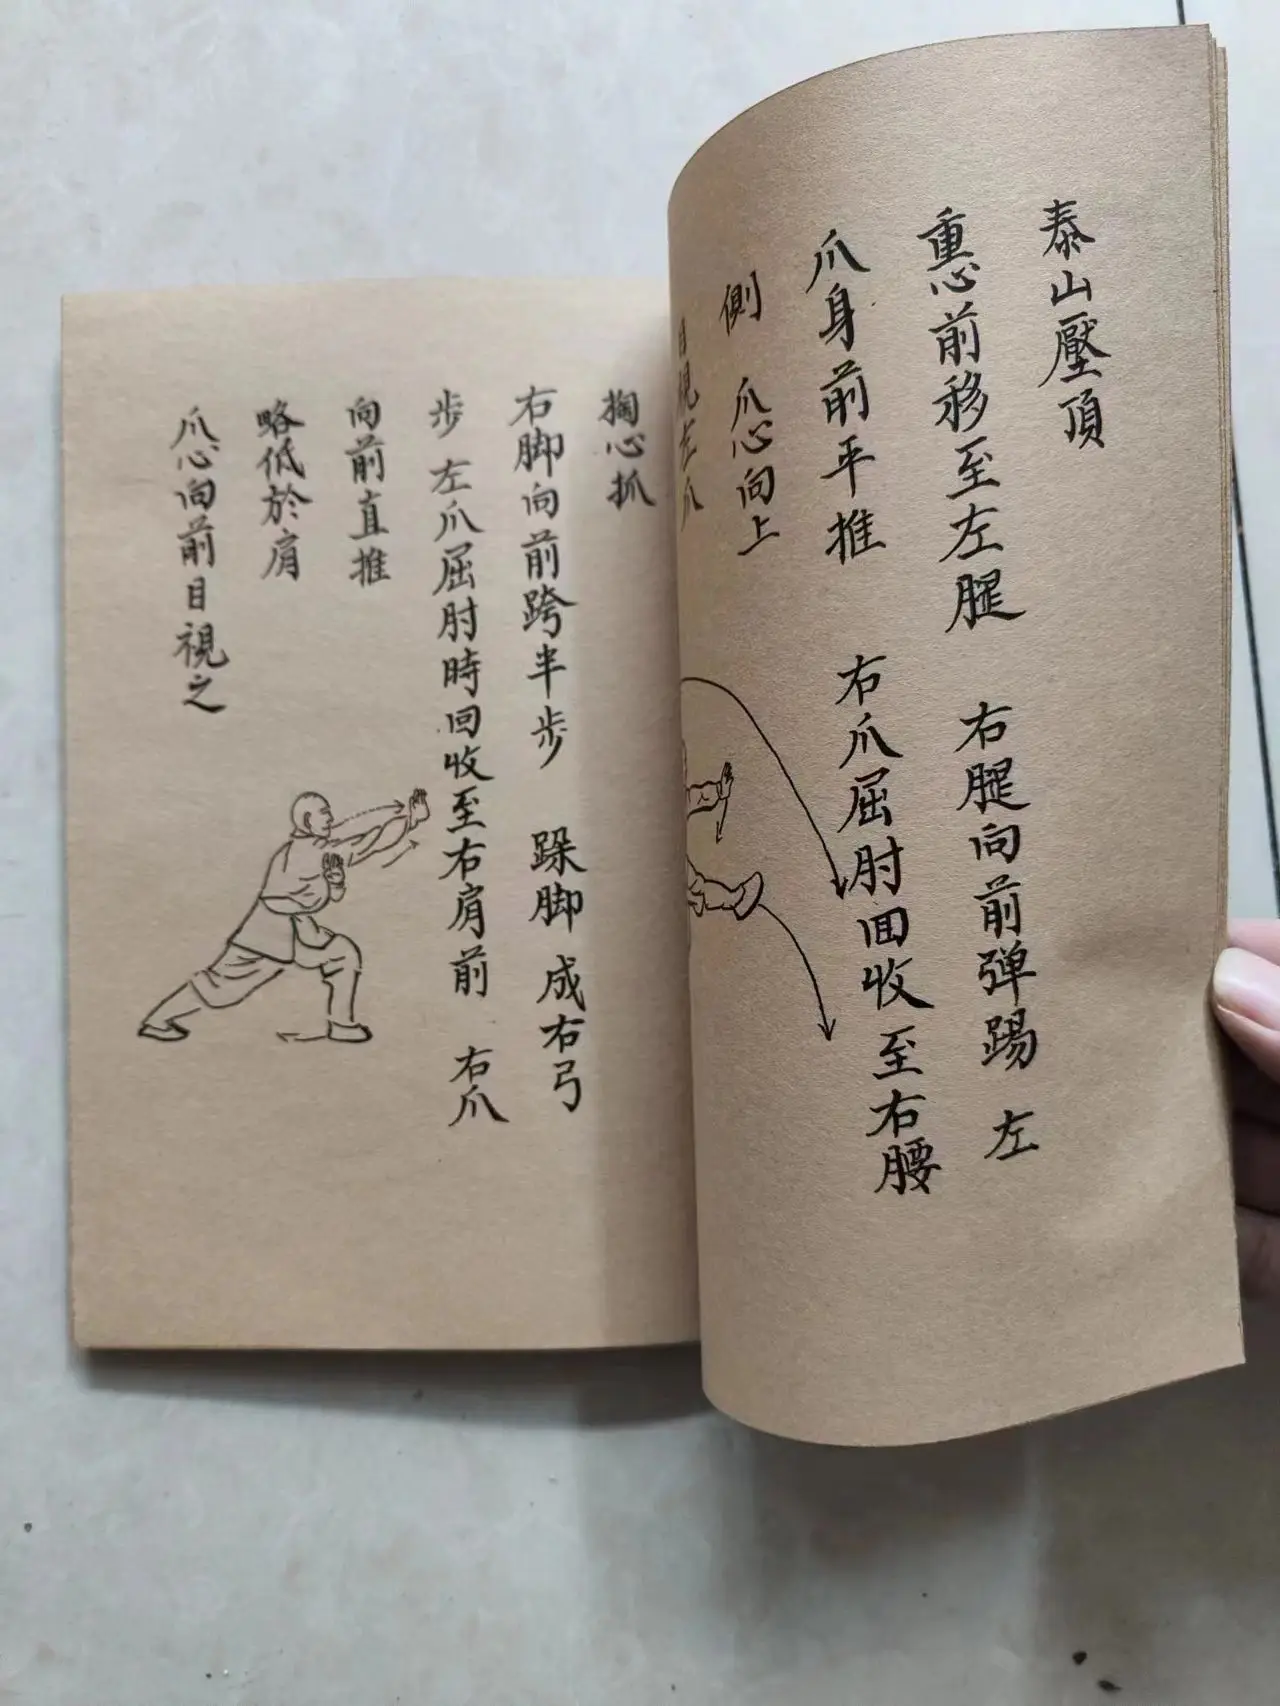 泰山壓頂
重心前移至左腿 右腿向前弹踢 左
爪身前平推 右爪屈肘回收至右腰
側 爪心向上
目視左爪
掏心抓
右脚向前跨半步 跺脚 成右弓
步 左爪屈肘時回收至右肩前 右爪
向前直推
略低於肩
爪心向前目視之